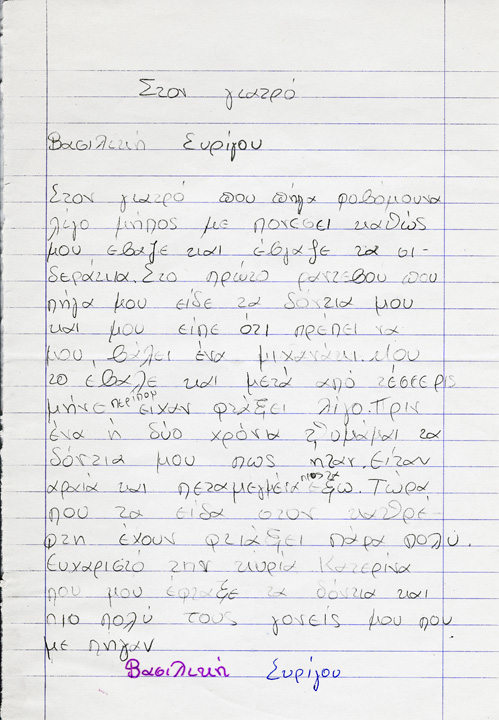 Στον γιατρό
Βασιλική Συρίγου
Στον γιατρό που πήγα φοβόμουνα
λίγο μήπος με πονέσει καθώς
μου έβαζε και έβγαζε τα σι-
δεράκια. Στο πρώτο ραντεβου που
πήγα μου είδε τα δόντια μου
και μου είπε ότι πρέπει να
μου βάλει ένα μιχανάκι. Μου
το έβαλε και μετά από τέσσερις
μήνες περίπου είχαν φτιάξει λίγο. Πριν
ένα ή δύο χρόνια θυμάμαι τα
δόντια μου πως ηταν. Είταν
αραιά και πεταμεγμέια πιο τα έξω. Τώρα
που τα είδα στον καθρέ-
φτη έχουν φτιάξει πάρα πολύ.
Ευχαριστό την κυρία Κατερίνα
που μου έφταξε τα δόντια και
πιο πολύ τους γονείς μου που
με πήγαν
Βασιλική Συρίγου